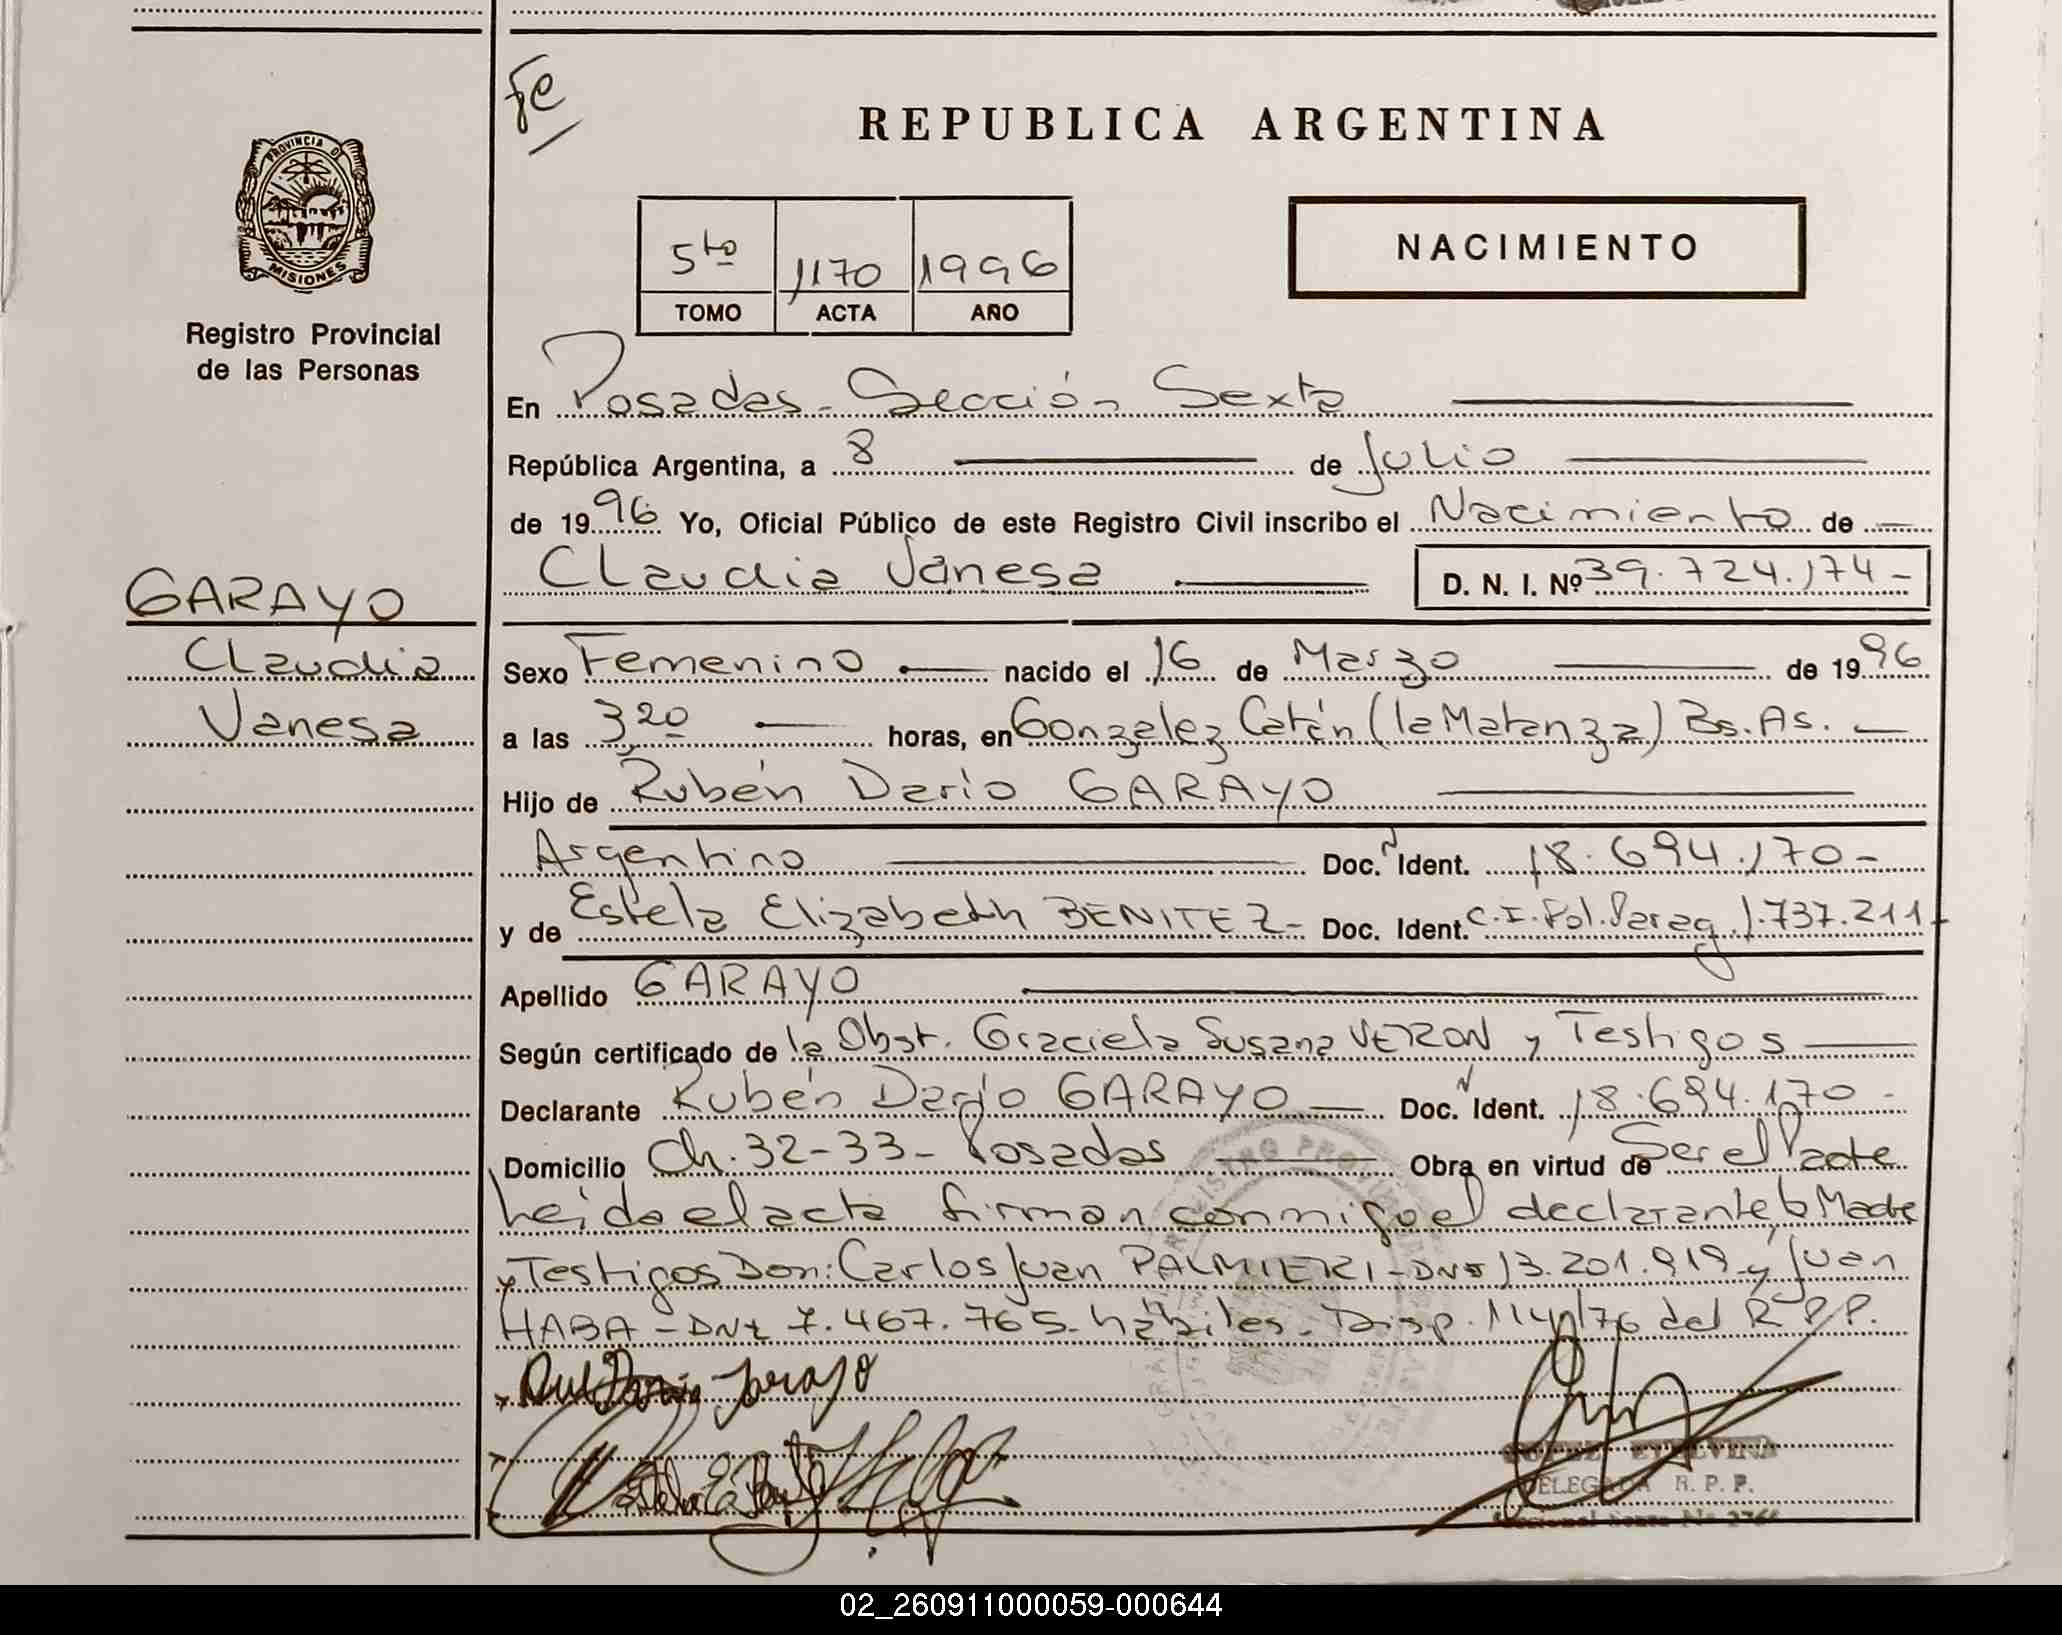 fe
REPUBLICA ARGENTINA
PROVINCIA D
MISIONES
Registro Provincial
de las Personas
5to 1170 1996
TOMO ACTA AÑO
NACIMIENTO
En Posadas - Sección Sexta
República Argentina, a 8 de Julio
de 1996 Yo, Oficial Público de este Registro Civil inscribo el Nacimiento de
Claudia Vanesa D. N. I. Nº 39.724.174-
GARAYO
Claudia
Vanesa
Sexo Femenino nacido el 16 de Marzo de 1996
a las 3,20 horas, en Gonzalez Catán (la Matanza) Bs. As.
Hijo de Rubén Dario GARAYO
Argentino Doc. N Ident. 18.694.170-
y de Estela Elizabeth BENITEZ- Doc. Ident. C.I. Pol. Parag 1.737.211-
Apellido GARAYO
Según certificado de la Obst. Graciela Susana VERON y Testigos
Declarante Rubén Dario GARAYO Doc. N Ident. 18.694.170-
Domicilio Ch. 32-33- Posadas Obra en virtud de Ser el Padre
Leida el acta firman conmigo el declarante, la Madre
y Testigos Don: Carlos Juan PALMIERI - DNI 13.201.919 y Juan
HABA - DNI 7.467.765. hábiles. Disp. 114/76 del R.P.P.
ETELVINA
DELEGADA R. P. P.
02_260911000059-000644